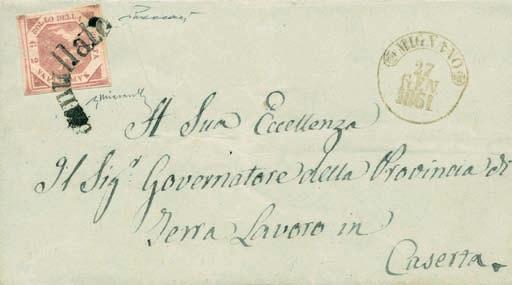 BOLLO DELLA
G 2
annullato
MIGNANO
27
GEN.
1861
A Sua Eccellenza
Il Sig.r Governatore della Provincia di
Terra Lavoro in
Caserta.